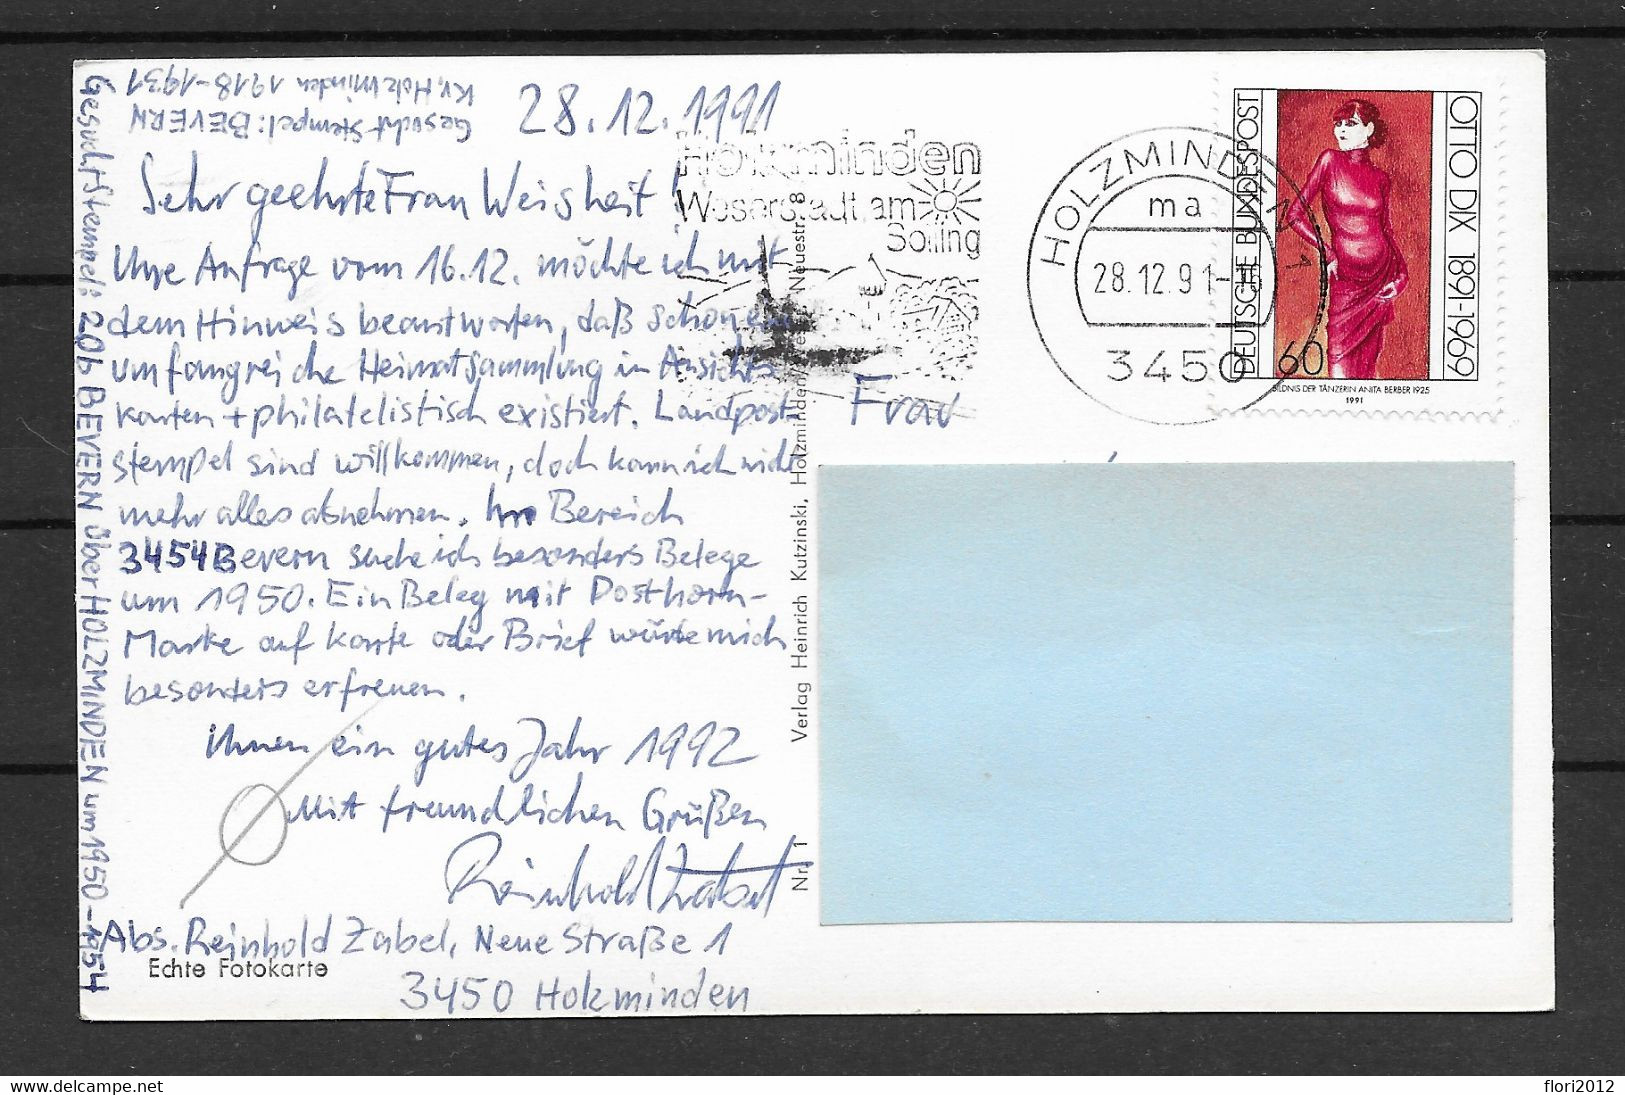 Gesucht Stempel: BEVERN
Kr. Holzminden 1918-1931
Gesucht Stempel: 20b BEVERN über HOLZMINDEN um 1950-1954
28.12.1991
Sehr geehrte Frau Weisheit!
Ihre Anfrage vom 16.12. möchte ich mit
dem Hinweis beantworten, daß schon eine
umfangreiche Heimatsammlung in Ansichts
karten + philatelistisch existiert. Landpost
stempel sind willkommen, doch kann ich nicht
mehr alles abnehmen. Im Bereich
3454 Bevern suche ich besonders Belege
um 1950. Ein Beleg mit Posthorn-
Marke auf Karte oder Brief würde mich
besonders erfreuen.
Ihnen ein gutes Jahr 1992
Mit freundlichen Grüßen
Reinhold Zabel
Abs. Reinhold Zabel, Neue Straße 1
3450 Holzminden
Echte Fotokarte
Nr. 1 Verlag Heinrich Kutzinski, Holzminden/Weser, Neuestr. 8
Holzminden
Weserstadt am
Solling
HOLZMINDEN 1
ma
28.12.91-16
3450
DEUTSCHE BUNDESPOST
OTTO DIX 1891-1969
60
BILDNIS DER TÄNZERIN ANITA BERBER 1925
1991
Frau
delcampe.net
flori2012